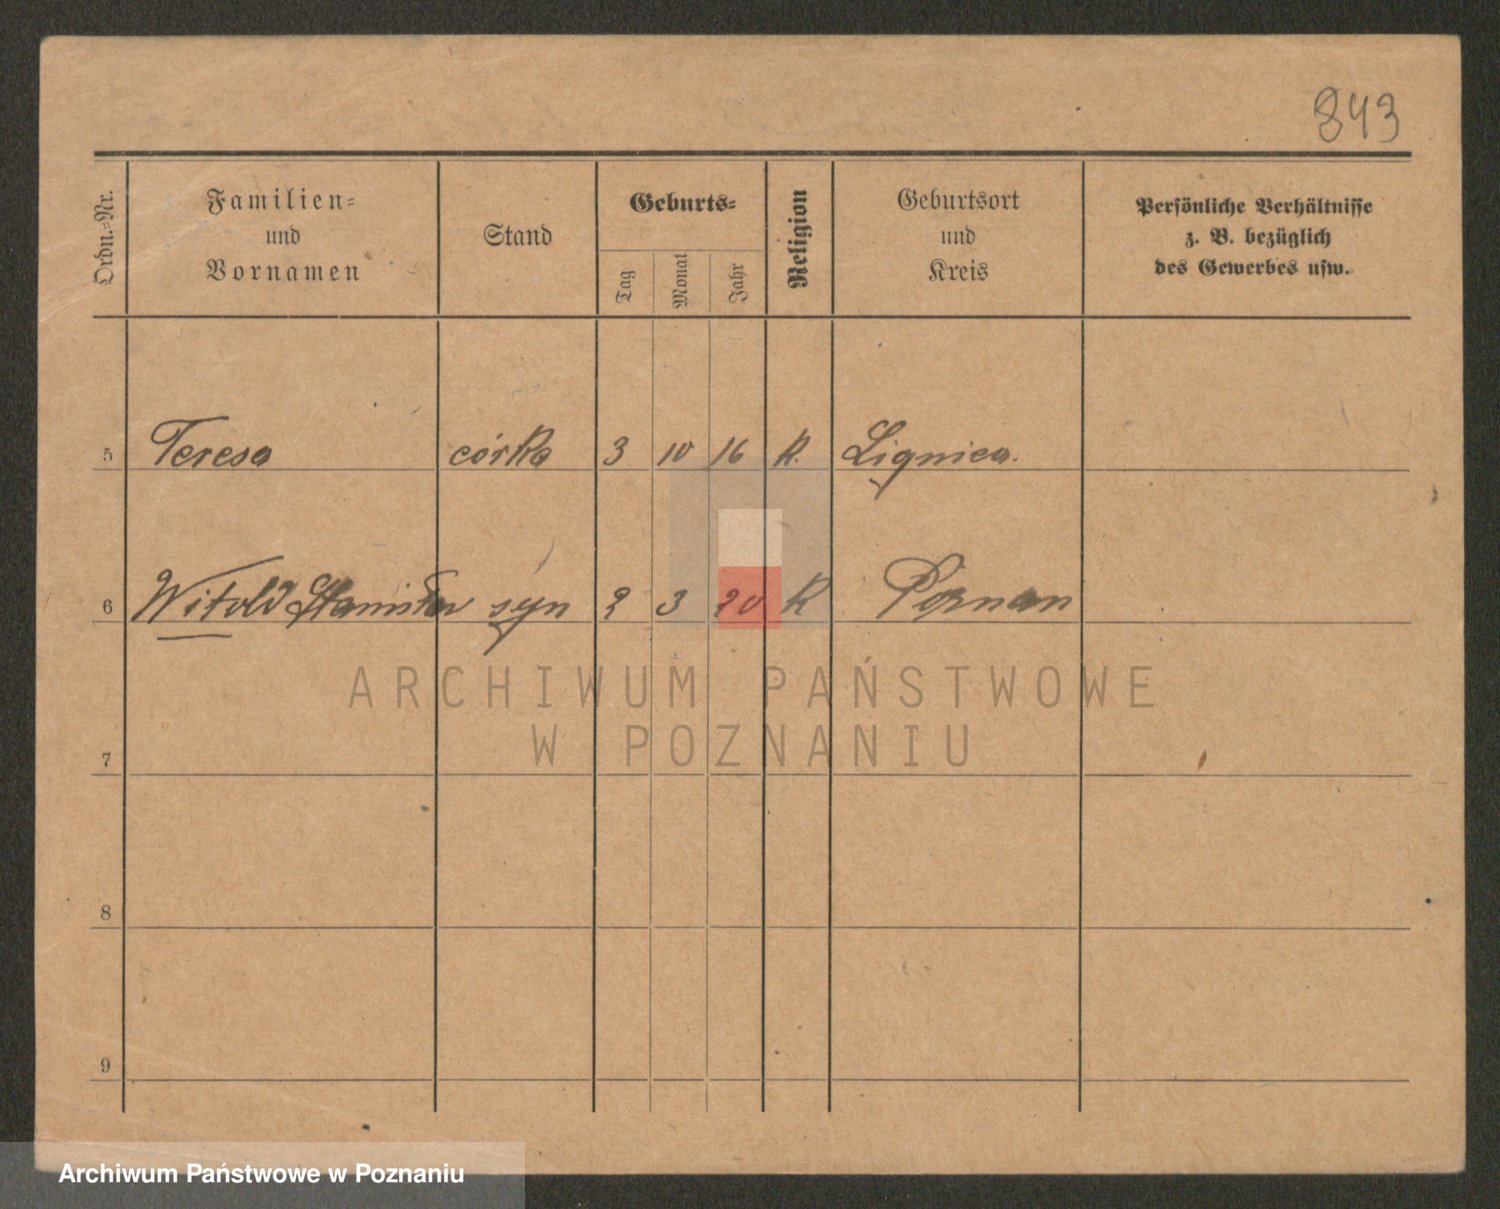 843
Ordn.-Nr.
Familien-
und
Vornamen
Stand
Geburts-
Tag
Monat
Jahr
Religion
Geburtsort
und
Kreis
Persönliche Verhältnisse
z. B. bezüglich
des Gewerbes usw.
5 Teresa córka 3 10 16 K. Lignica.
6 Witold Stanisław syn 2 3 20 K Poznan
7
8
9
ARCHIWUM PAŃSTWOWE
W POZNANIU
Archiwum Państwowe w Poznaniu